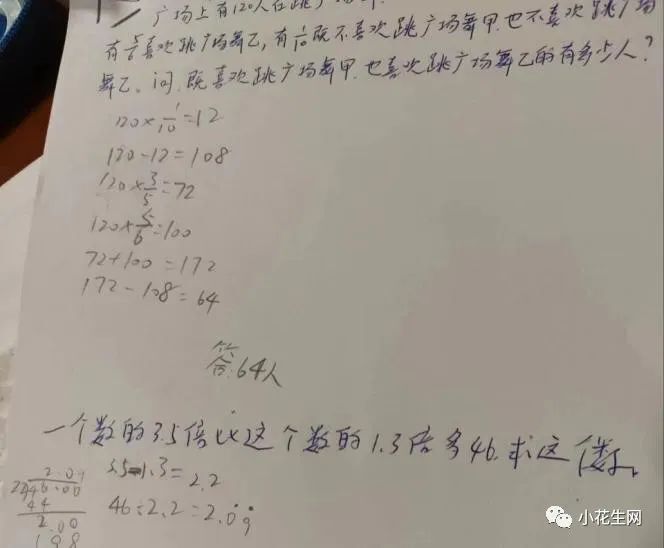 广场上有120人在跳
有5/6喜欢跳广场舞乙,有1/10既不喜欢跳广场舞甲.也不喜欢跳广场
舞乙、问.既喜欢跳广场舞甲.也喜欢跳广场舞乙的有多少人?
120×1/10=12
120-12=108
120×3/5=72
120×5/6=100
72+100=172
172-108=64
答:64人
一个数的3.5倍比这个数的1.3倍多46.求这个数。
3.5-1.3=2.2
46÷2.2=2.0̇9̇
2.09
46.00
44
2.00
198
小花生网